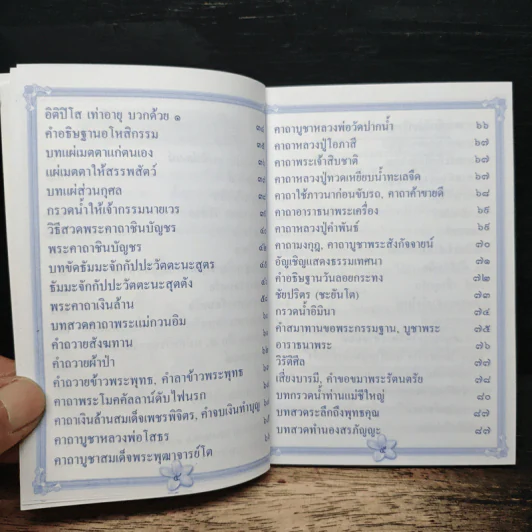 อิติปิโส เท่าอายุ บวกด้วย ๑
คำอธิษฐานอโหสิกรรม
บทแผ่เมตตาแก่ตนเอง
แผ่เมตตาให้สรรพสัตว์
บทแผ่ส่วนกุศล
กรวดน้ำให้เจ้ากรรมนายเวร
วิธีสวดพระคาถาชินบัญชร
พระคาถาชินบัญชร
บทขัดธัมมะจักกัปปะวัตตะนะสูตร
ธัมมะจักกัปปะวัตตะนะสุตตัง
พระคาถาเงินล้าน
บทสวดคาถาพระแม่กวนอิม
คำถวายสังฆทาน
คำถวายผ้าป่า
คำถวายข้าวพระพุทธ, คำลาข้าวพระพุทธ
คาถาพระโมคคัลลาน์ดับไฟนรก
คาถาเงินล้านสมเด็จเพชรพิจิตร, คำจบเงินทำบุญ
คาถาบูชาหลวงพ่อโสธร
คาถาบูชาสมเด็จพระพุฒาจารย์โต
คาถาบูชาหลวงพ่อวัดปากน้ำ ๖๖
คาถาหลวงปู่โอภาสี ๖๗
คาถาพระเจ้าสิบชาติ ๖๗
คาถาหลวงปู่ทวดเหยียบน้ำทะเลจืด ๖๗
คาถาใช้ภาวนาก่อนขับรถ, คาถาค้าขายดี ๖๘
คาถาอาราธนาพระเครื่อง ๖๙
คาถาหลวงปู่คำพันธ์ ๖๙
คาถามงกุฎ, คาถาบูชาพระสังกัจจายน์ ๗๐
อัญเชิญแสดงธรรมเทศนา ๗๑
คำอธิษฐานวันลอยกระทง ๗๒
ชัยปริตร (ชะยันโต) ๗๓
กรวดน้ำอิมินา ๗๔
คำสมาทานขอพระกรรมฐาน, บูชาพระ ๗๕
อาราธนาพระ ๗๖
วิรัติศีล ๗๗
เสี่ยงบารมี, คำขอขมาพระรัตนตรัย ๗๘
บทกรวดน้ำท่านแม่ชีใหญ่ ๘๐
บทสวดระลึกถึงพุทธคุณ ๘๗
บทสวดทำนองสรภัญญะ ๘๗